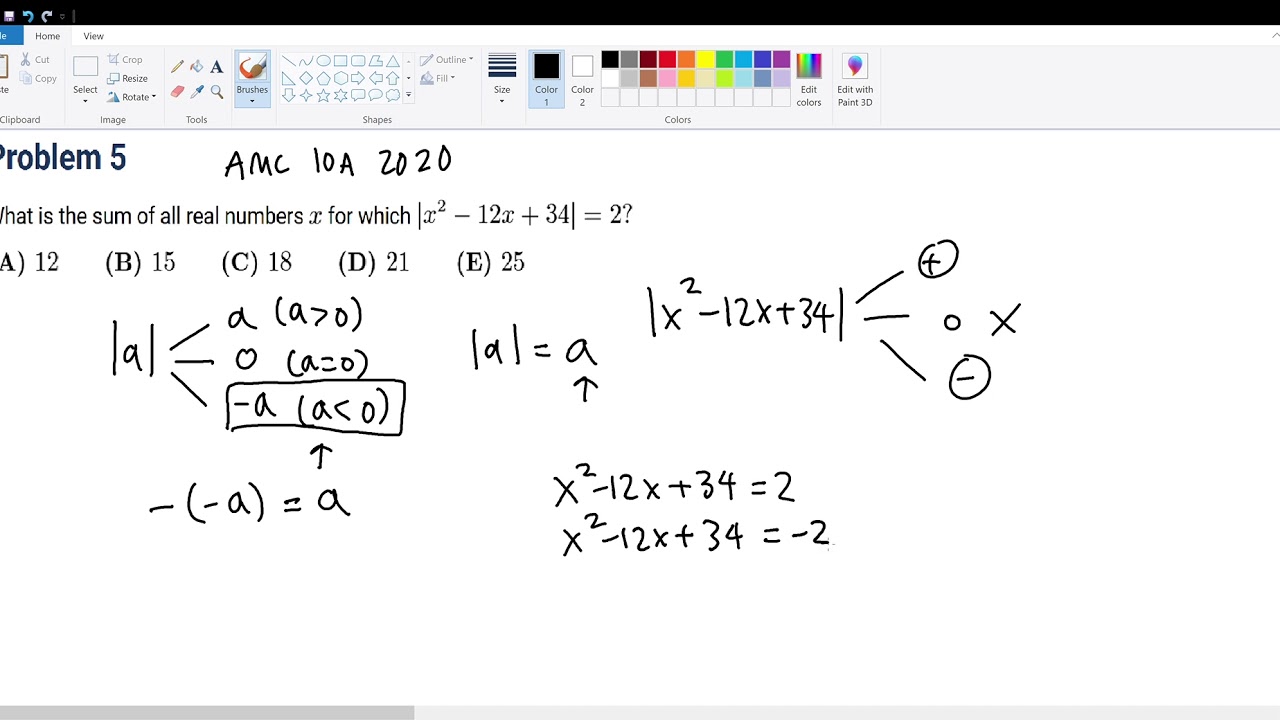 Home View
Cut
Copy
Clipboard
Select
Crop
Resize
Rotate
Image
A
Tools
Brushes
Outline
Fill
Shapes
Size
Color 1
Color 2
Edit colors
Edit with Paint 3D
Colors
Problem 5 AMC 10A 2020
What is the sum of all real numbers x for which |x² − 12x + 34| = 2?
A) 12 (B) 15 (C) 18 (D) 21 (E) 25
|a|
a (a>0)
0 (a=0)
-a (a<0)
↑
-(-a) = a
|a| = a
↑
|x²-12x+34|
+
0 X
-
x²-12x+34=2
x²-12x+34=-2